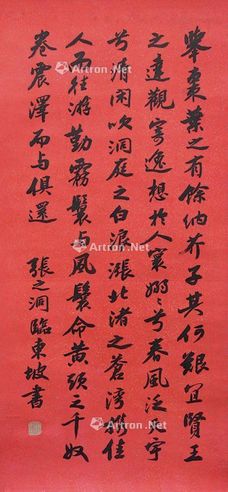 舉棗葉之有餘納芥子其何艱宜賢王
之達觀寄逸想於人寰嫋〻兮春風泛天宇
兮清閑吹洞庭之白浪漲北渚之蒼灣攜佳
人而往游勤霧鬢与風鬟命黃頭之千奴
卷震澤而与俱還 張之洞臨東坡書
Artron.Net
Artron.Net
Artron.Net
Artron.Net